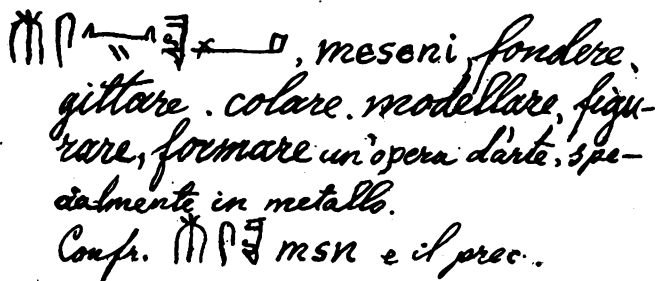 , meseni, fondere,
gittare. colare. modellare, figu-
rare, formare un'opera d'arte, spe-
cialmente in metallo.
Confr. msn e il prec..